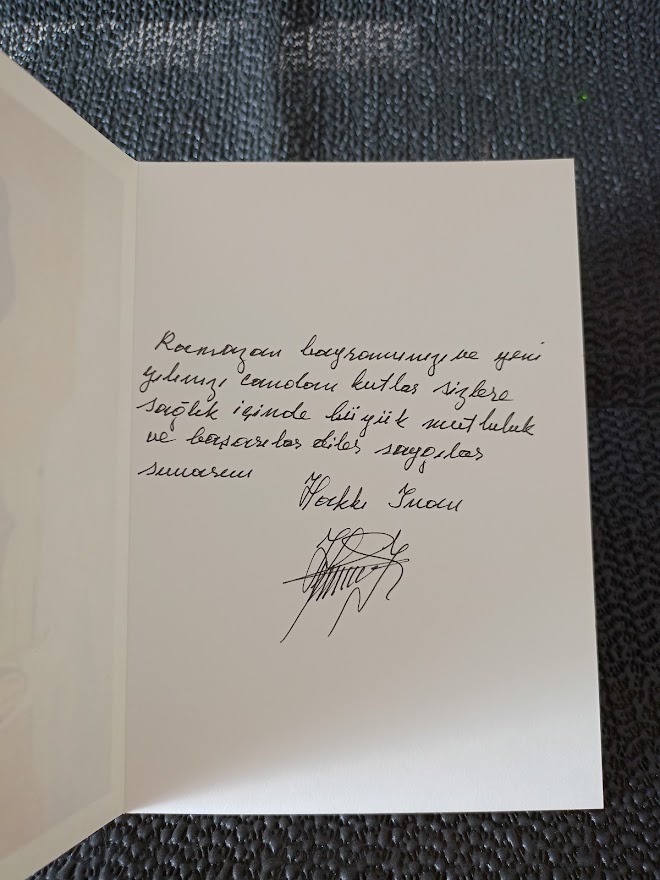 Ramazan bayramınızı ve yeni
yılınızı candan kutlar sizlere
sağlık içinde büyük mutluluk
ve başarılar diler saygılar
sunarım
Hakkı İnan